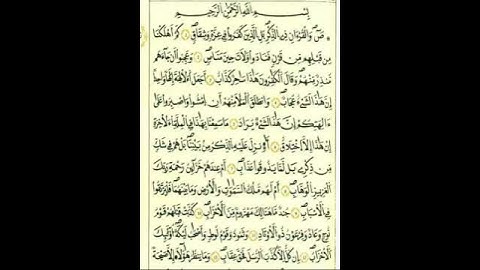 بِسْمِ اللَّهِ الرَّحْمَٰنِ الرَّحِيمِ
صٓ وَالْقُرْآنِ ذِي الذِّكْرِ ۝ بَلِ الَّذِينَ كَفَرُوا فِي عِزَّةٍ وَشِقَاقٍ ۝ كَمْ أَهْلَكْنَا
مِن قَبْلِهِم مِّن قَرْنٍ فَنَادَوا وَّلَاتَ حِينَ مَنَاصٍ ۝ وَعَجِبُوا أَن جَاءَهُم
مُّنذِرٌ مِّنْهُمْ وَقَالَ الْكَافِرُونَ هَٰذَا سَاحِرٌ كَذَّابٌ ۝ أَجَعَلَ الْآلِهَةَ إِلَٰهًا وَاحِدًا
إِنَّ هَٰذَا لَشَيْءٌ عُجَابٌ ۝ وَانطَلَقَ الْمَلَأُ مِنْهُمْ أَنِ امْشُوا وَاصْبِرُوا عَلَىٰ
آلِهَتِكُمْ إِنَّ هَٰذَا لَشَيْءٌ يُرَادُ ۝ مَا سَمِعْنَا بِهَٰذَا فِي الْمِلَّةِ الْآخِرَةِ
إِنْ هَٰذَا إِلَّا اخْتِلَاقٌ ۝ أَأُنزِلَ عَلَيْهِ الذِّكْرُ مِن بَيْنِنَا بَلْ هُمْ فِي شَكٍّ
مِّن ذِكْرِي بَل لَّمَّا يَذُوقُوا عَذَابِ ۝ أَمْ عِندَهُمْ خَزَائِنُ رَحْمَةِ رَبِّكَ
الْعَزِيزِ الْوَهَّابِ ۝ أَمْ لَهُم مُّلْكُ السَّمَاوَاتِ وَالْأَرْضِ وَمَا بَيْنَهُمَا فَلْيَرْتَقُوا
فِي الْأَسْبَابِ ۝ جُندٌ مَّا هُنَالِكَ مَهْزُومٌ مِّنَ الْأَحْزَابِ ۝ كَذَّبَتْ قَبْلَهُمْ قَوْمُ
نُوحٍ وَعَادٌ وَفِرْعَوْنُ ذُو الْأَوْتَادِ ۝ وَثَمُودُ وَقَوْمُ لُوطٍ وَأَصْحَابُ لْـَٔيْكَةِ أُولَٰئِكَ
الْأَحْزَابُ ۝ إِن كُلٌّ إِلَّا كَذَّبَ الرُّسُلَ فَحَقَّ عِقَابِ ۝ وَمَا يَنظُرُ هَٰؤُلَاءِ إِلَّا صَيْحَةً